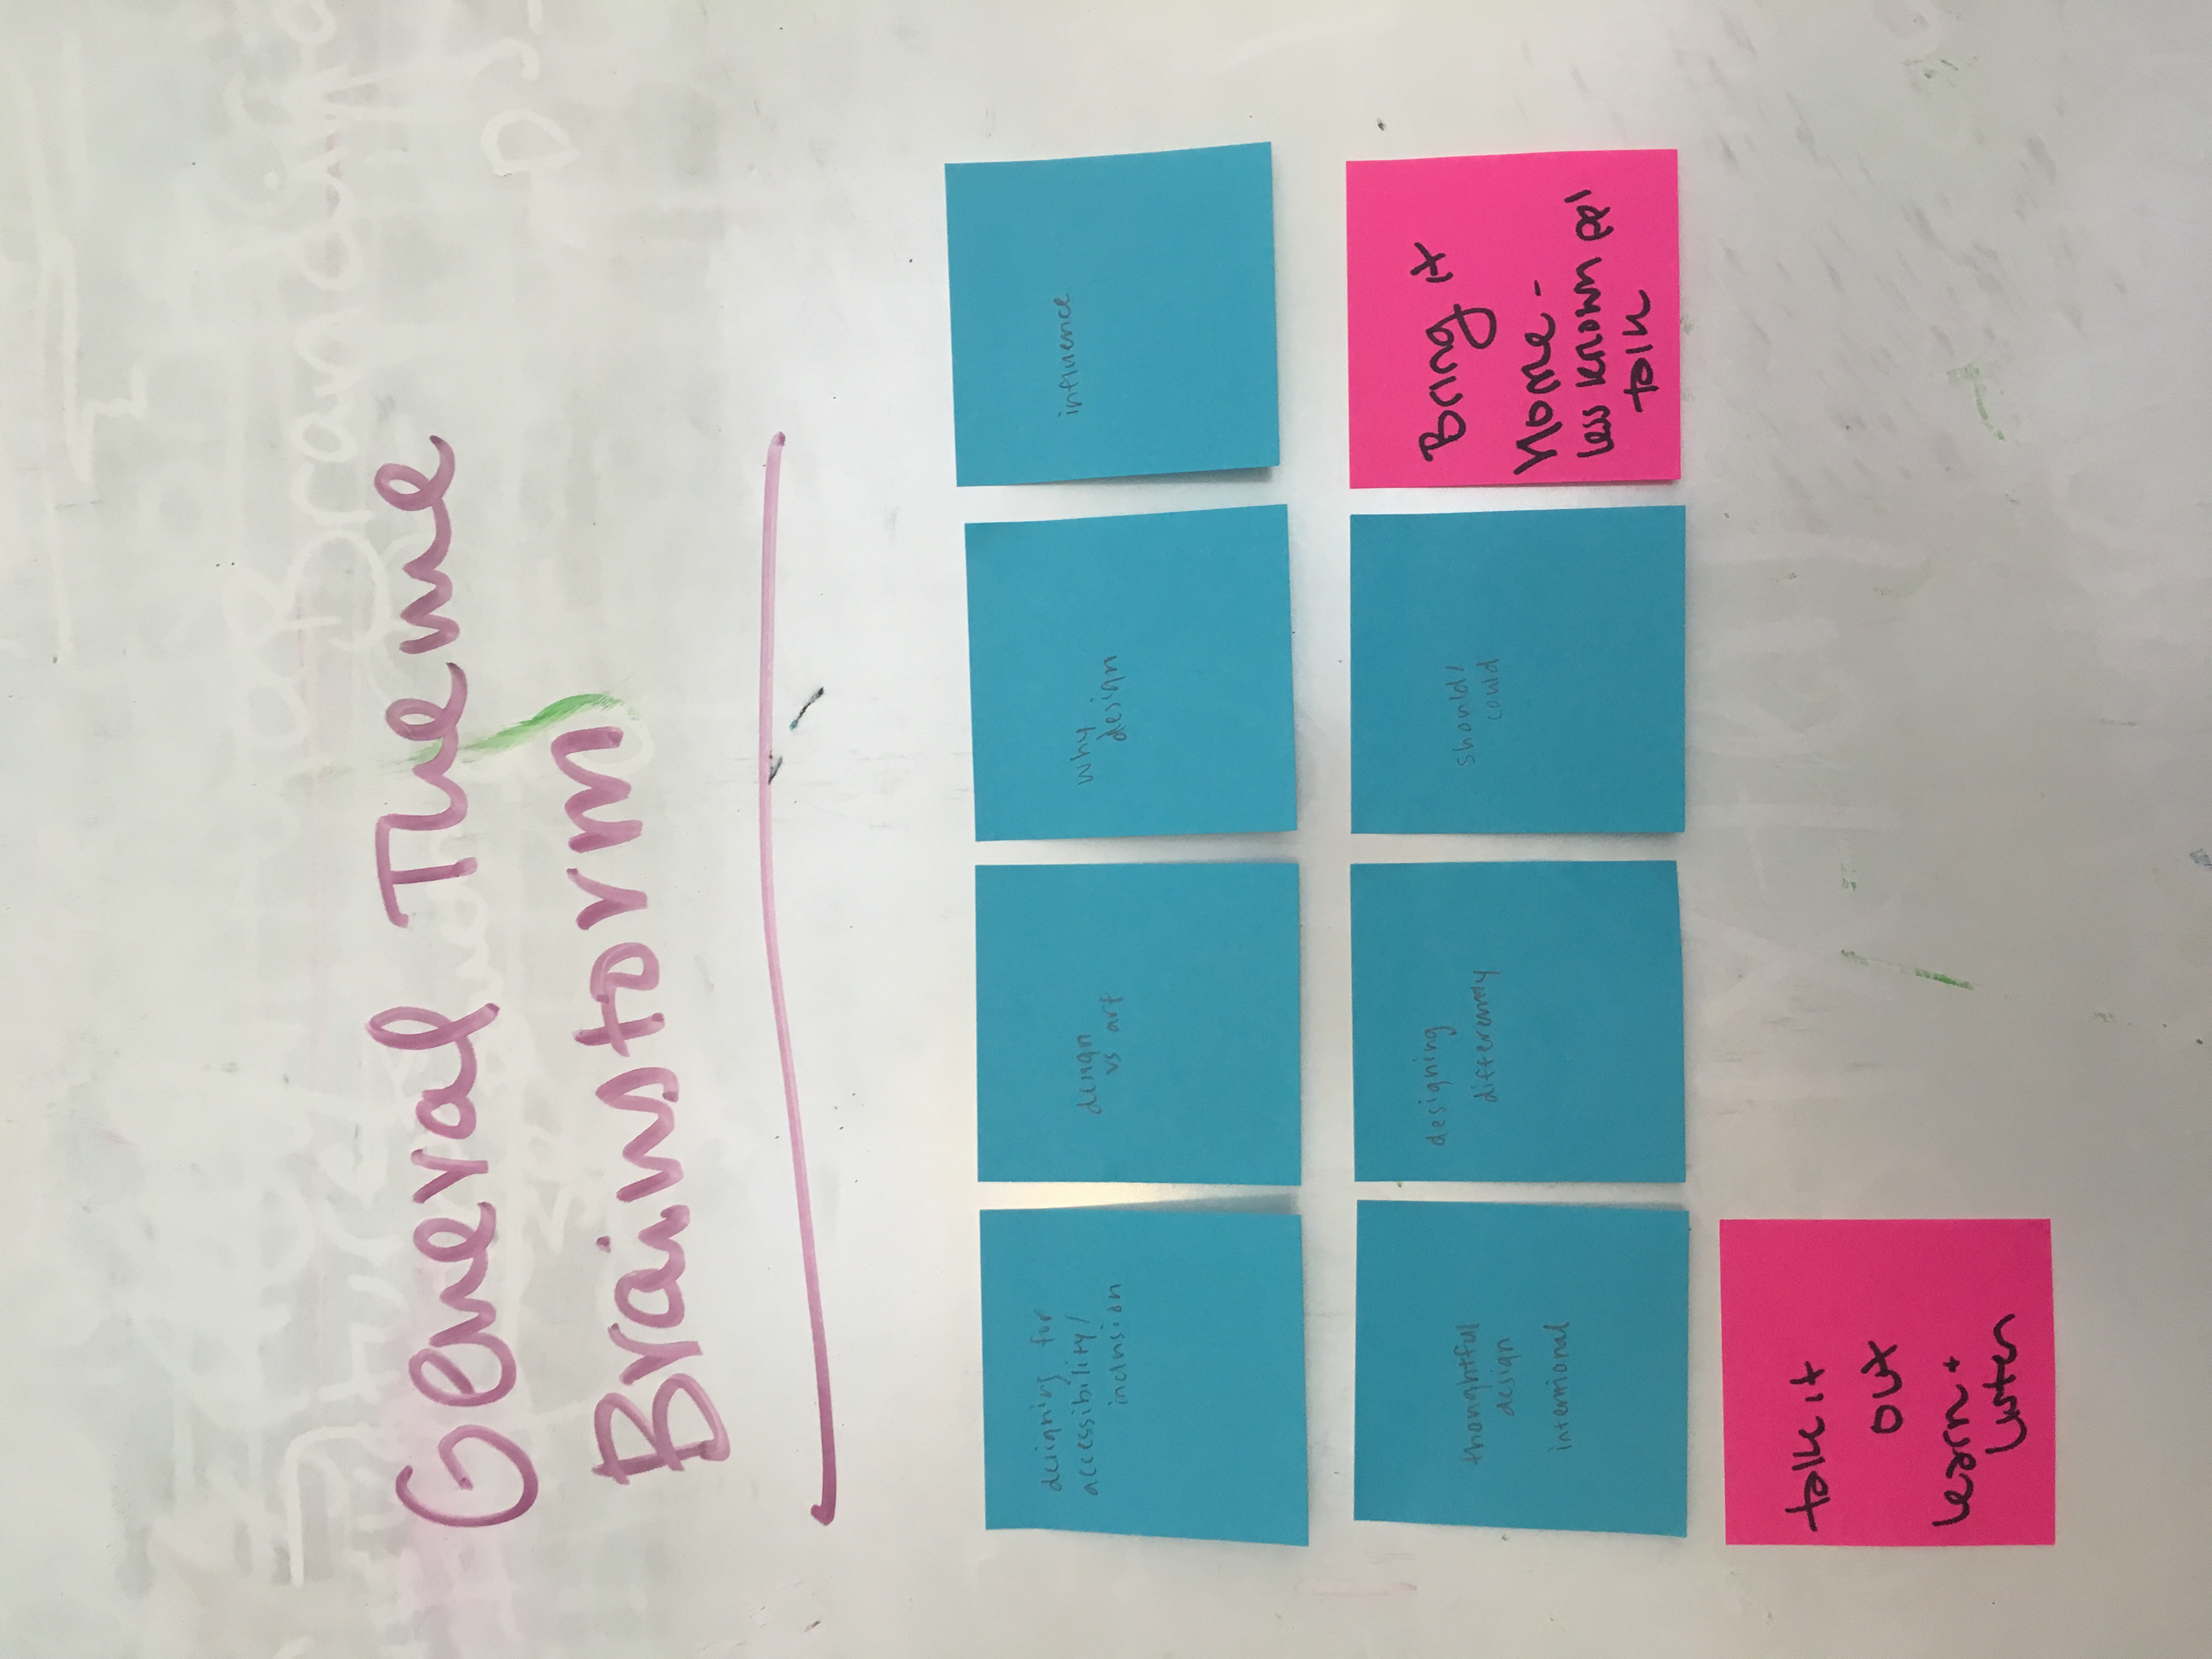 Branding
General Theme
Brainstorm
designing for
accessibility/
inclusion
design
vs art
why
design
influence
thoughtful
design
intentional
designing
differently
should/
could
Bring it
Home -
less known ppl
talk
talk it
out
learn +
listen